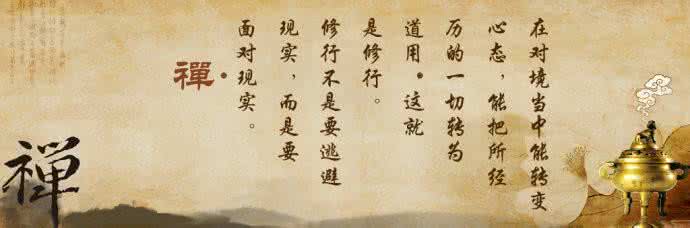 在对境当中能转变
心态，能把所经
历的一切转为
道用。这就
是修行。
修行不是要逃避
现实，而是要
面对现实。
禪
禪